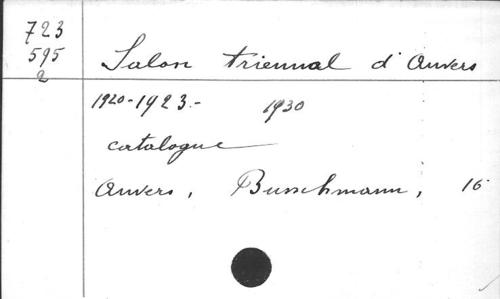 723
595
2
Salon triennal d'Anvers
1920-1923.- 1930
catalogue
Anvers, Buschmann, 16